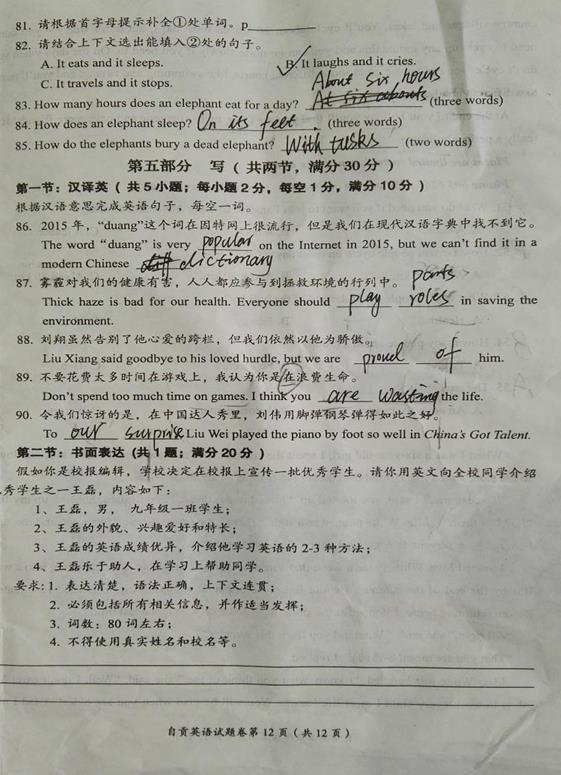 81. 请根据首字母提示补全①处单词。p
82. 请结合上下文选出能填入②处的句子。
A. It eats and it sleeps. B. It laughs and it cries.
C. It travels and it stops.
About six hours
83. How many hours does an elephant eat for a day? At six abouts (three words)
84. How does an elephant sleep? On its feet. (three words)
85. How do the elephants bury a dead elephant? With tusks (two words)
第五部分 写 ( 共两节，满分 30 分 )
第一节：汉译英 ( 共 5 小题；每小题 2 分，每空 1 分，满分 10 分 )
根据汉语意思完成英语句子，每空一词。
86. 2015 年，“duang”这个词在因特网上很流行，但是我们在现代汉语字典中找不到它。
The word “duang” is very popular on the Internet in 2015, but we can’t find it in a
modern Chinese dictionary
87. 雾霾对我们的健康有害，人人都应参与到拯救环境的行列中。 parts
Thick haze is bad for our health. Everyone should play roles in saving the
environment.
88. 刘翔虽然告别了他心爱的跨栏，但我们依然以他为骄傲。
Liu Xiang said goodbye to his loved hurdle, but we are proud of him.
89. 不要花费太多时间在游戏上，我认为你是在浪费生命。
Don’t spend too much time on games. I think you are wasting the life.
90. 令我们惊讶的是，在中国达人秀里，刘伟用脚弹钢琴弹得如此之好。
To our surprise Liu Wei played the piano by foot so well in China’s Got Talent.
第二节：书面表达 (共 1 题；满分 20 分 )
假如你是校报编辑，学校决定在校报上宣传一批优秀学生。请你用英文向全校同学介绍
秀学生之一王磊，内容如下：
1、王磊，男， 九年级一班学生；
2、王磊的外貌、兴趣爱好和特长；
3、王磊的英语成绩优异，介绍他学习英语的 2-3 种方法；
4、王磊乐于助人，在学习上帮助同学。
要求：1. 表达清楚，语法正确，上下文连贯；
2. 必须包括所有相关信息，并作适当发挥；
3. 词数：80 词左右；
4. 不得使用真实姓名和校名等。
自贡英语试题卷第 12 页（共 12 页）